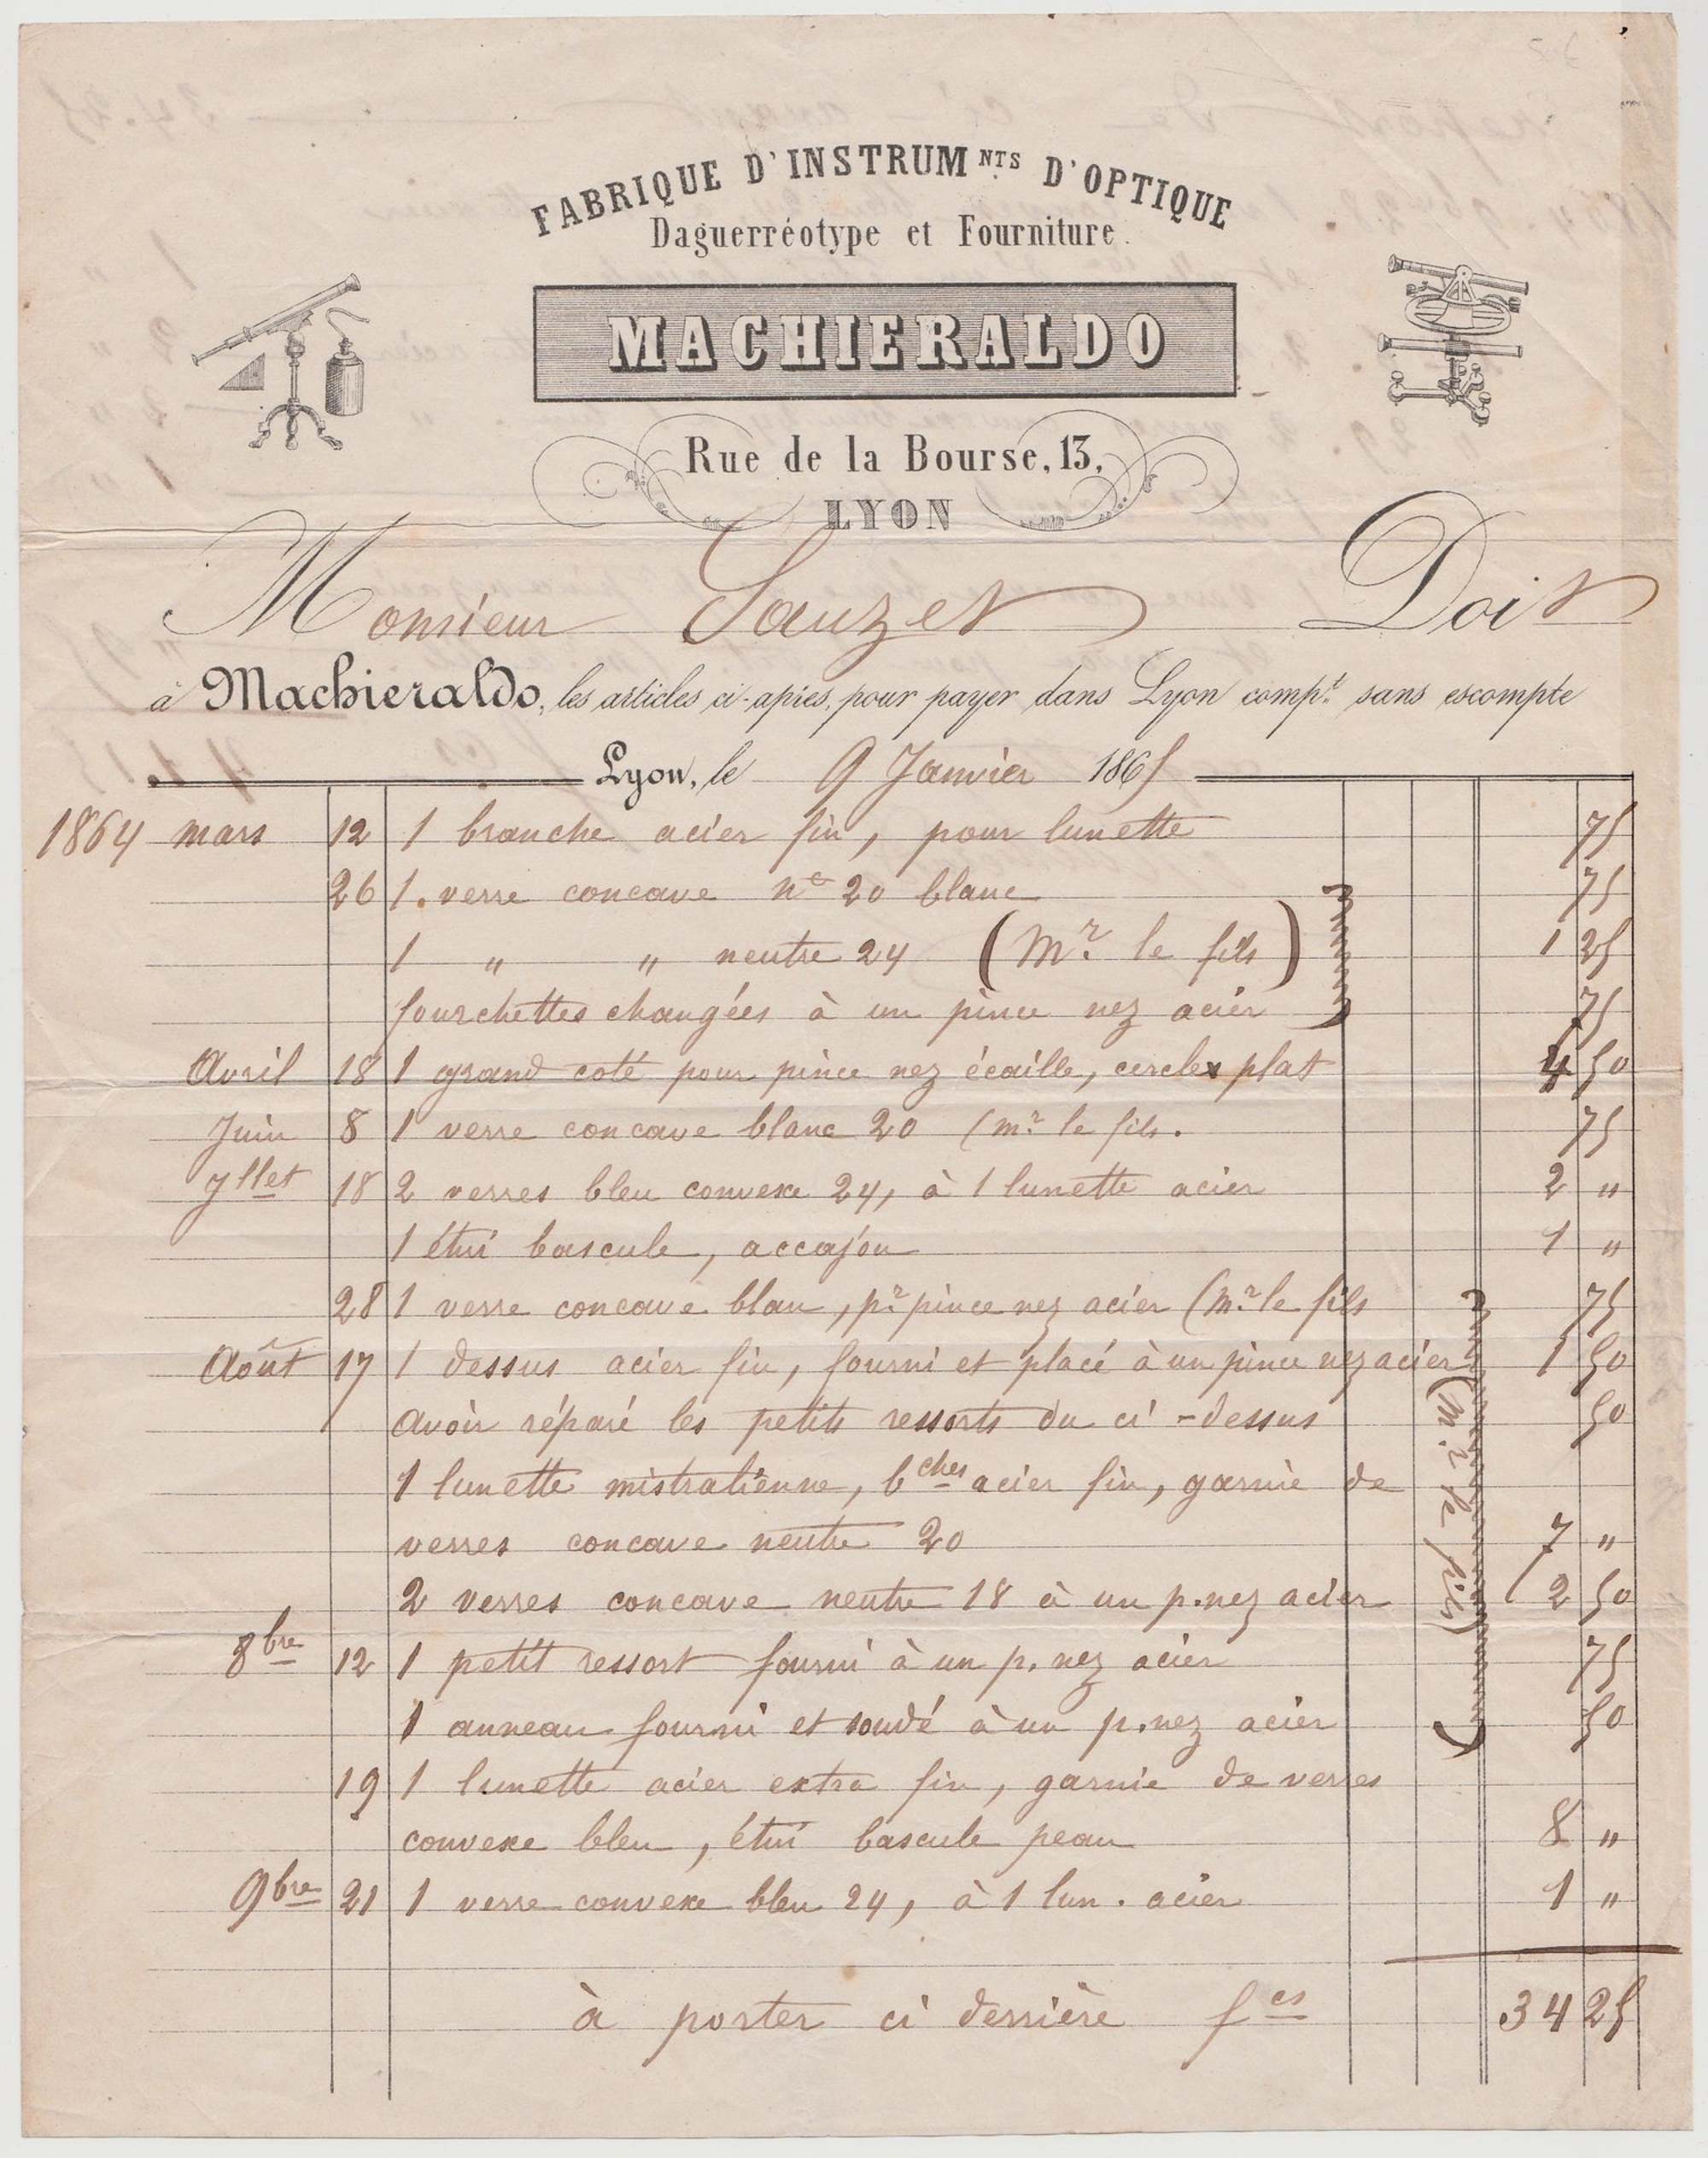 FABRIQUE D'INSTRUMNTS D'OPTIQUE
Daguerréotype et Fourniture.
MACHIERALDO
Rue de la Bourse, 13,
LYON
Monsieur Sauzet Doit
à Machieraldo, les articles ci-après, pour payer dans Lyon compt. sans escompte
Lyon, le 9 Janvier 1865
1864 mars 12 1 branche acier fin, pour lunette 75
26 1. verre concave no 20 blanc 75
1 " " neutre 24 (Mr. le fils) 1 25
fourchettes changées à un pince nez acier 75
Avril 18 1 grand coté pour pince nez écaille, cercle plat 4 50
Juin 8 1 verre concave blanc 20 (mr. le fils. 75
Jllet 18 2 verres bleu convexe 24, à 1 lunette acier 2 "
1 étui bascule, accajou 1 "
28 1 verre concave blan, pr. pince nez acier (Mr. le fils 75
Août 17 1 dessus acier fin, fourni et placé à un pince nez acier 1 50
avoir réparé les petits ressorts du ci-dessus 50
1 lunette mistratienne, bches acier fin, garnie de
verres concave neutre 20 7 "
2 verres concave neutre 18 à un p. nez acier 2 50
(Mr. le fils)
8bre 12 1 petit ressort fourni à un p. nez acier 75
1 anneau fourni et soudé à un p. nez acier 50
19 1 lunette acier extra fin, garnie de verres
convexe bleu, étui bascule peau 8 "
9bre 21 1 verre convexe bleu 24, à 1 lun. acier 1 "
à porter ci derrière fcs 34 25